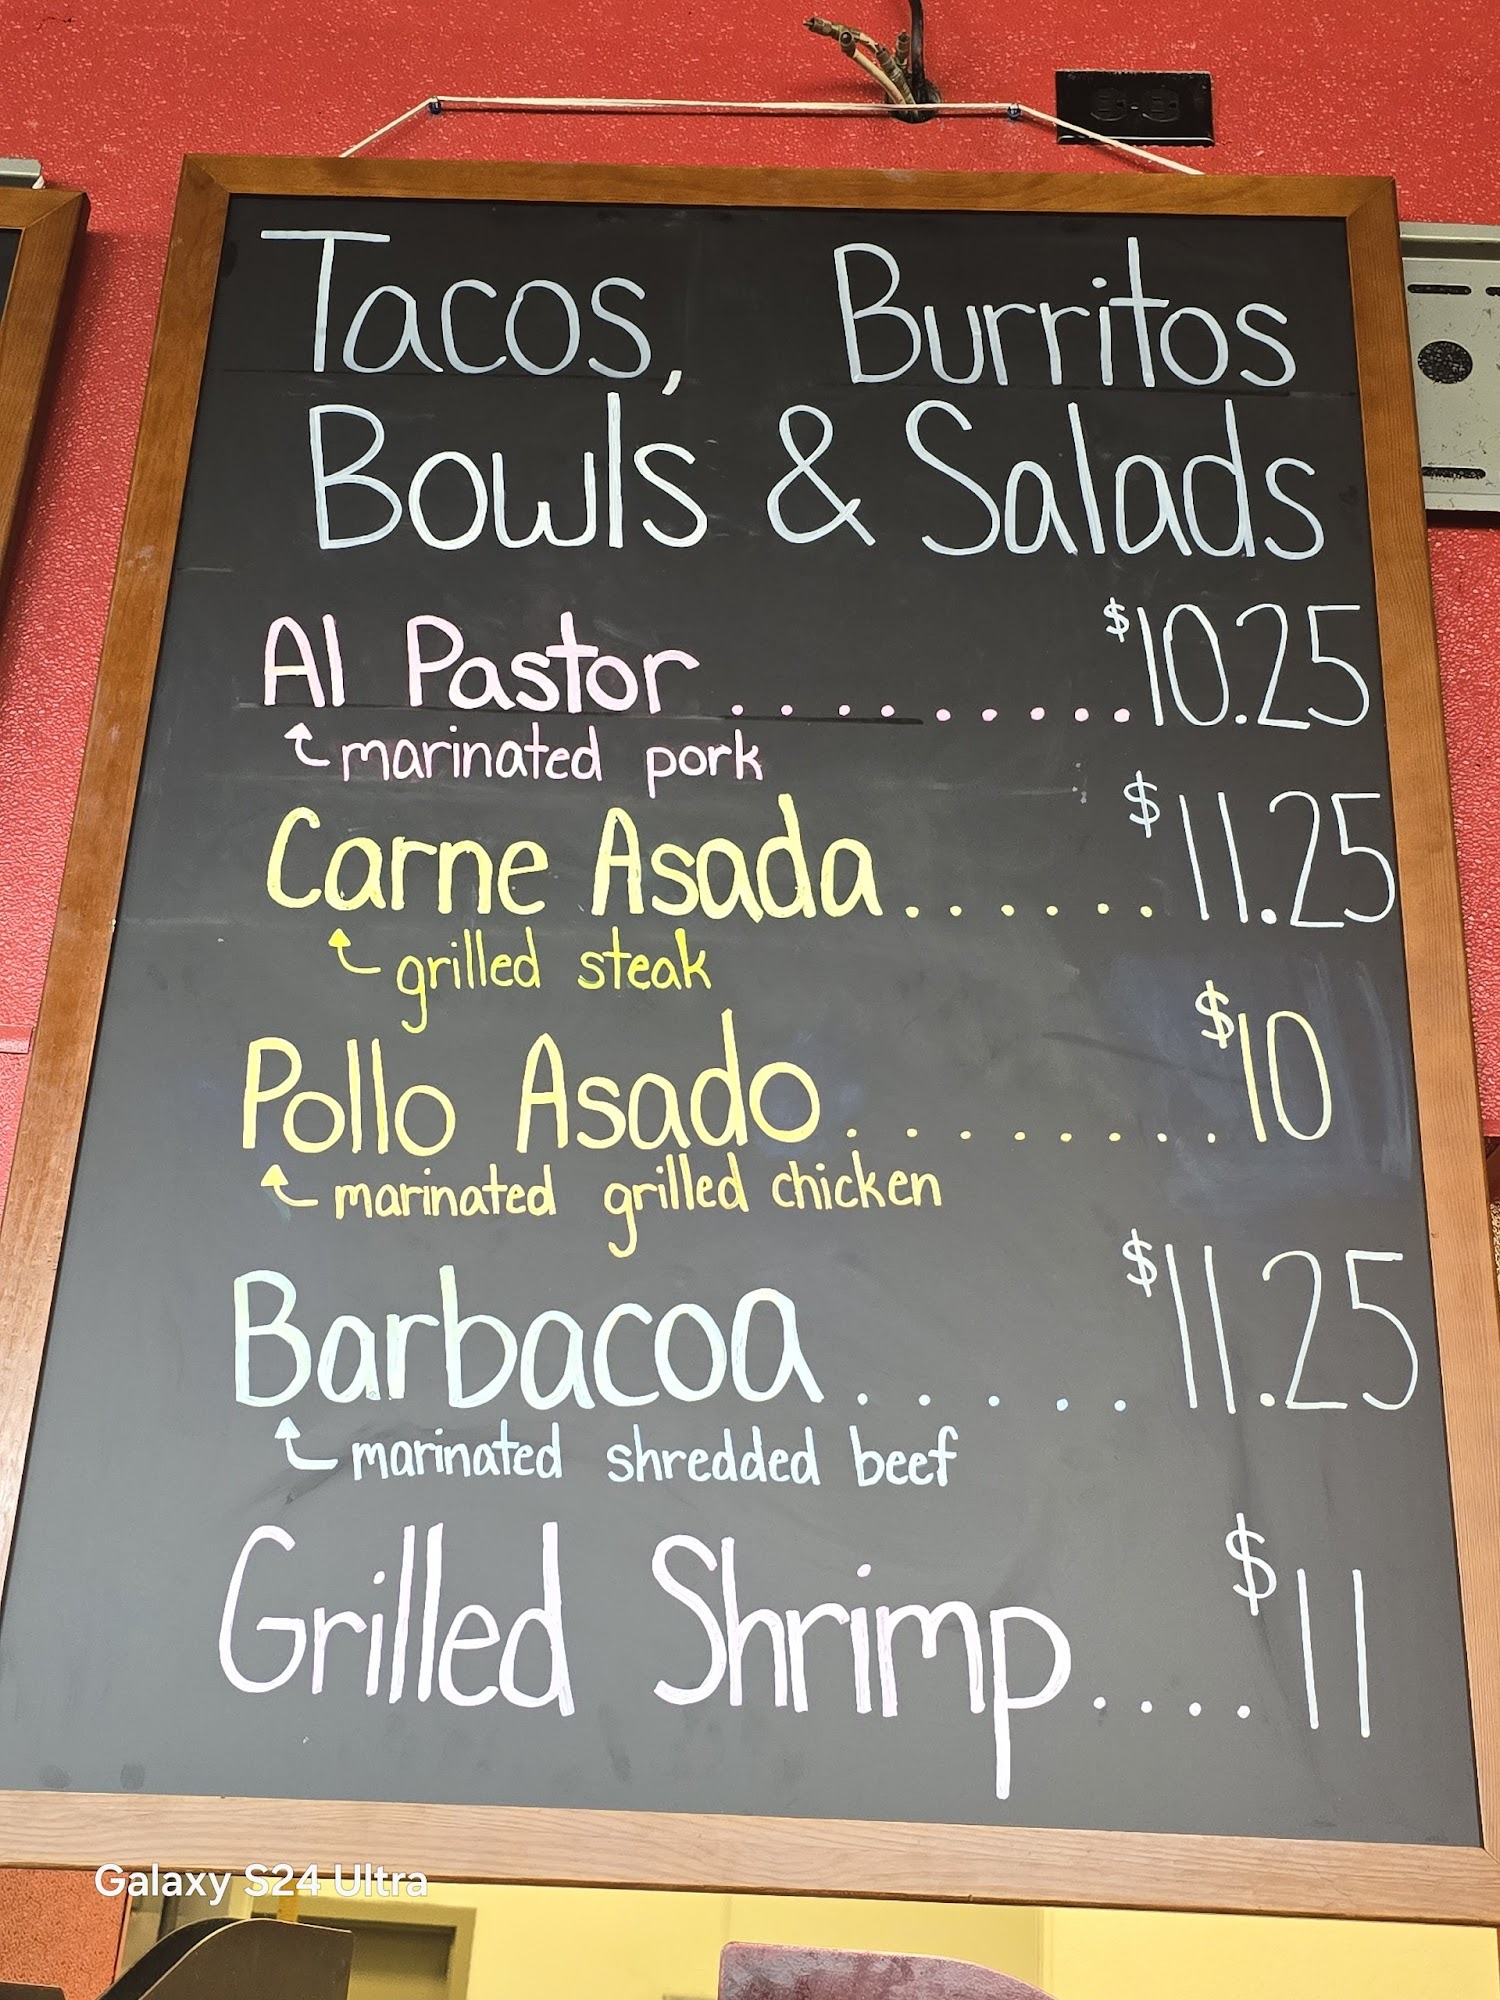 Tacos, Burritos
Bowls & Salads
Al Pastor..........$10.25
marinated pork
Carne Asada.......$11.25
grilled steak
Pollo Asado........$10
marinated grilled chicken
Barbacoa......$11.25
marinated shredded beef
Grilled Shrimp....$11
Galaxy S24 Ultra